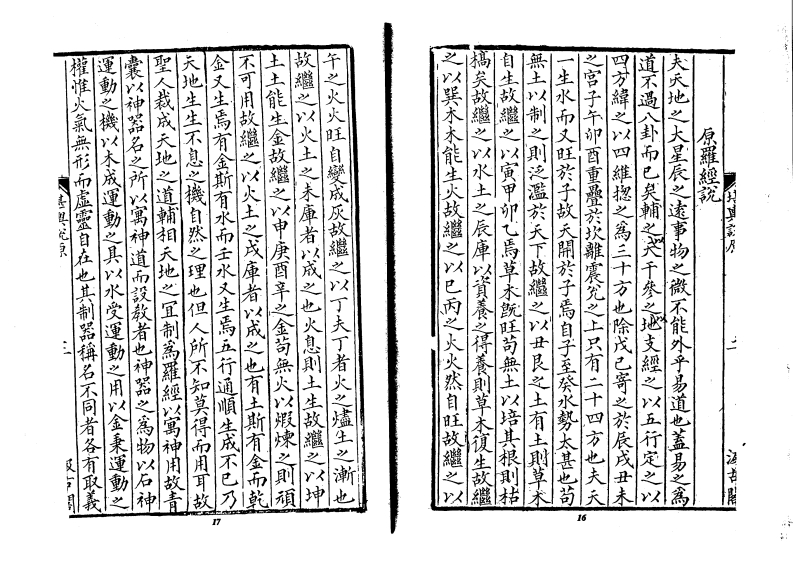 原羅經說
夫天地之大星辰之遠事物之微不能外乎易道也蓋易之為
道不過八卦而已矣輔之以天干參之以地支經之以五行定之以
四方緯之以四維揔之為三十方也除戊己寄之於辰戌丑未
之宮子午卯酉重疊於坎離震兌之上只有二十四方也夫天
一生水而又旺於子故天開於子焉自子至癸水勢太甚也苟
無土以制之則泛濫於天下故繼之以丑艮之土有土則草木
自生故繼之以寅甲卯乙焉草木旣旺苟無土以培其根則枯
槁矣故繼之以水土之辰庫以資養之得養則草木復生故繼
之以巽木木能生火故繼之以巳丙之火火然自旺故繼之以
16
午之火火旺自變成灰故繼之以丁夫丁者火之燼土之漸也
故繼之以火土之未庫者以成之也火息則土生故繼之以坤
土土能生金故繼之以申庚酉辛之金苟無火以煆煉之則頑
不可用故繼之以火土之戌庫者以成之也有土斯有金而乾
金又生焉有金斯有水而壬水又生焉五行通順生成不已乃
天地生生不息之機自然之理也但人所不知莫得而用耳故
聖人裁成天地之道輔相天地之宜制爲羅經以寓神用故青
囊以神器名之所以寓神道而設教者也神器之為物以石神
運動之機以木成運動之具以水受運動之用以金秉運動之
權惟火氣無形而虛靈自在也其制器稱名不同者各有取義
堪輿說原
17